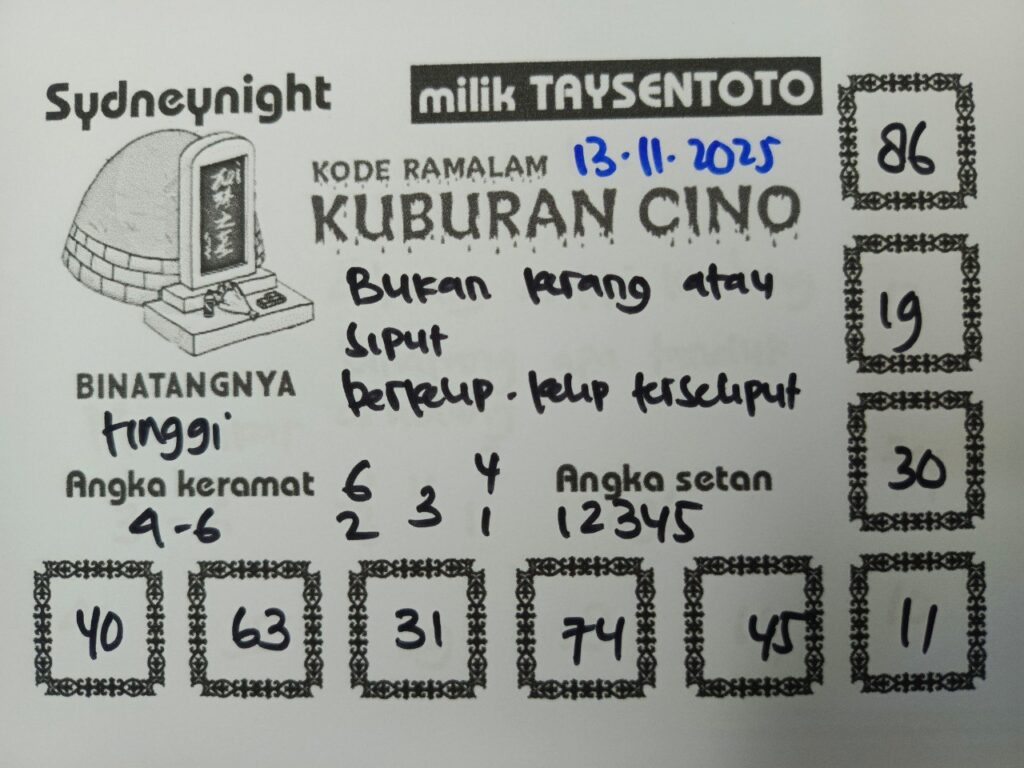 Sydneynight
milik TAYSENTOTO
KODE RAMALAM 13.11.2025
KUBURAN CINO
Bukan kerang atau
siput
berkelip-kelip terseliput
BINATANGNYA
tinggi
Angka keramat
4-6
6 4
3
2 1
Angka setan
12345
86
19
30
40 63 31 74 45 11